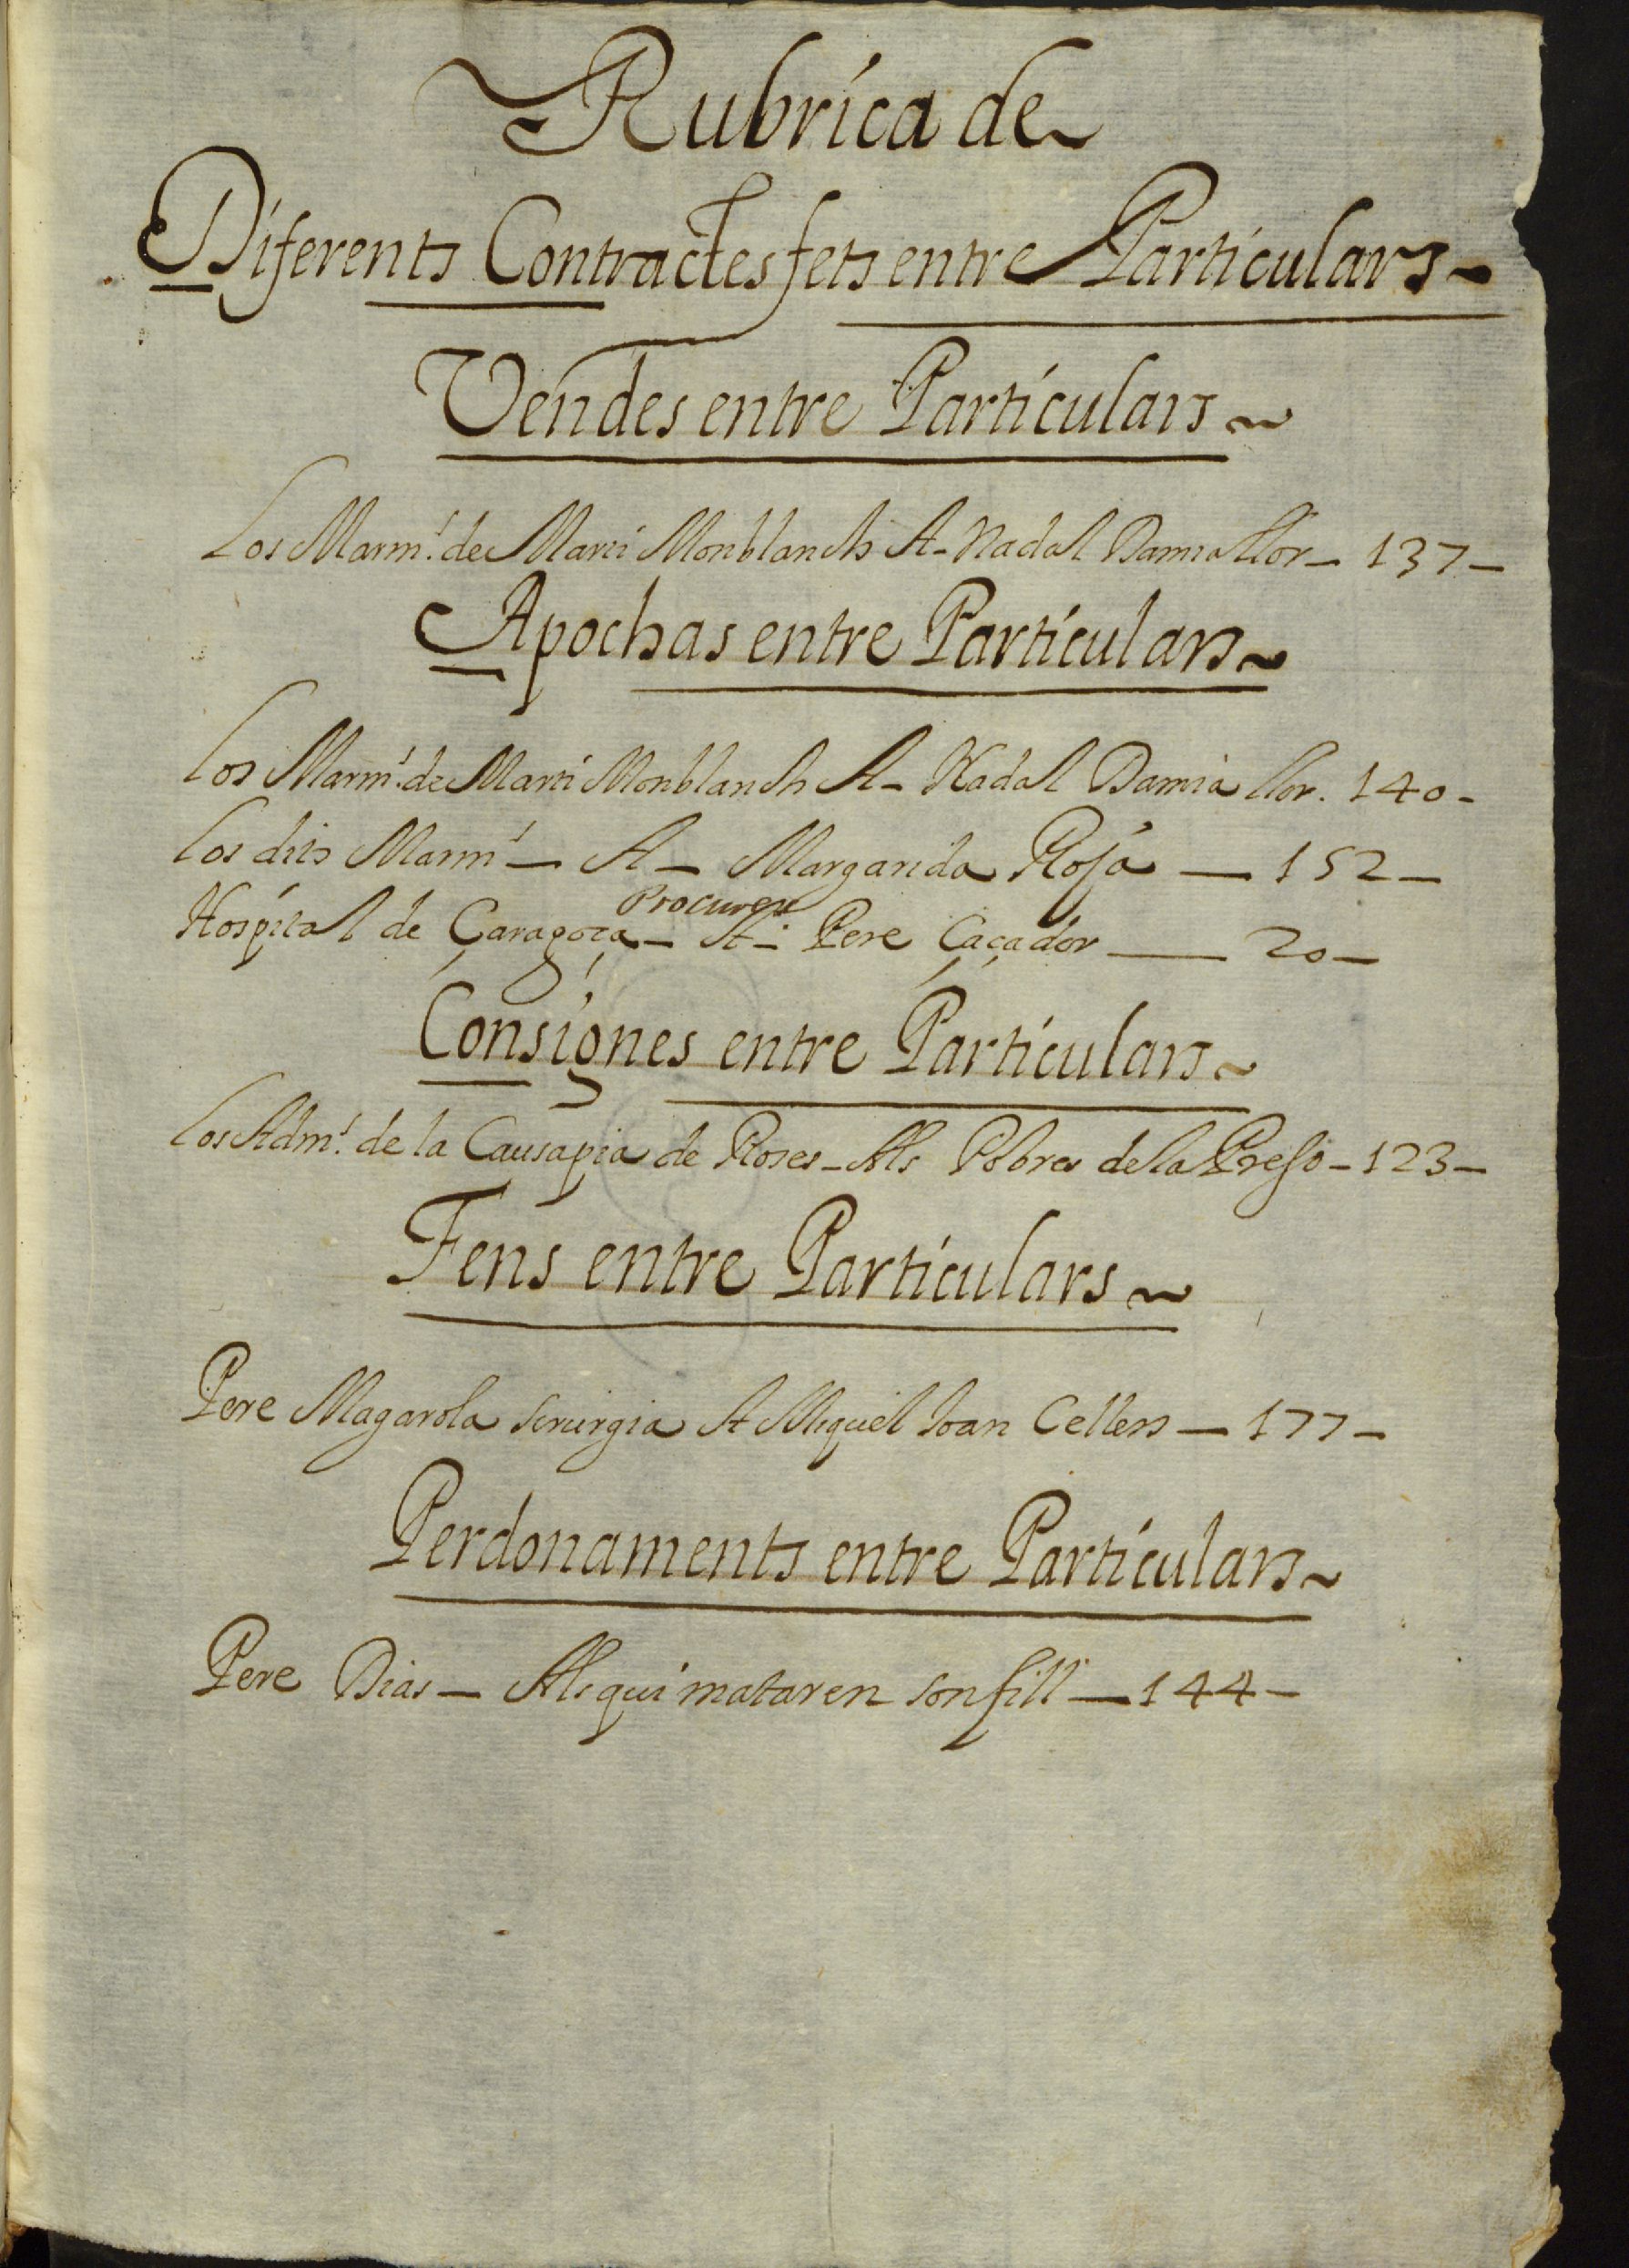 Rubrica de
Diferents Contractes fets entre Particulars
Vendes entre Particulars
Los Marm.ˢ de Marti Monblanch A - Nadal Damia Llor - 137 -
Apochas entre Particulars
Los Marm.ˢ de Marti Monblanch A - Nadal Damia Llor. 140 -
Los dits Marmˢ - A - Margarida Rosa - 152 -
Procura
Hospital de Çaragoça - A - Pere Caçador - 20 -
Consignes entre Particulars
Los Adm.ˢ de la Causapia de Roses - Als Pobres de la Preso - 123 -
Fens entre Particulars
Pere Magarola sirurgia A Miquel Joan Cellers - 177 -
Perdonaments entre Particulars
Pere Dias - Als qui mataren son fill - 144 -